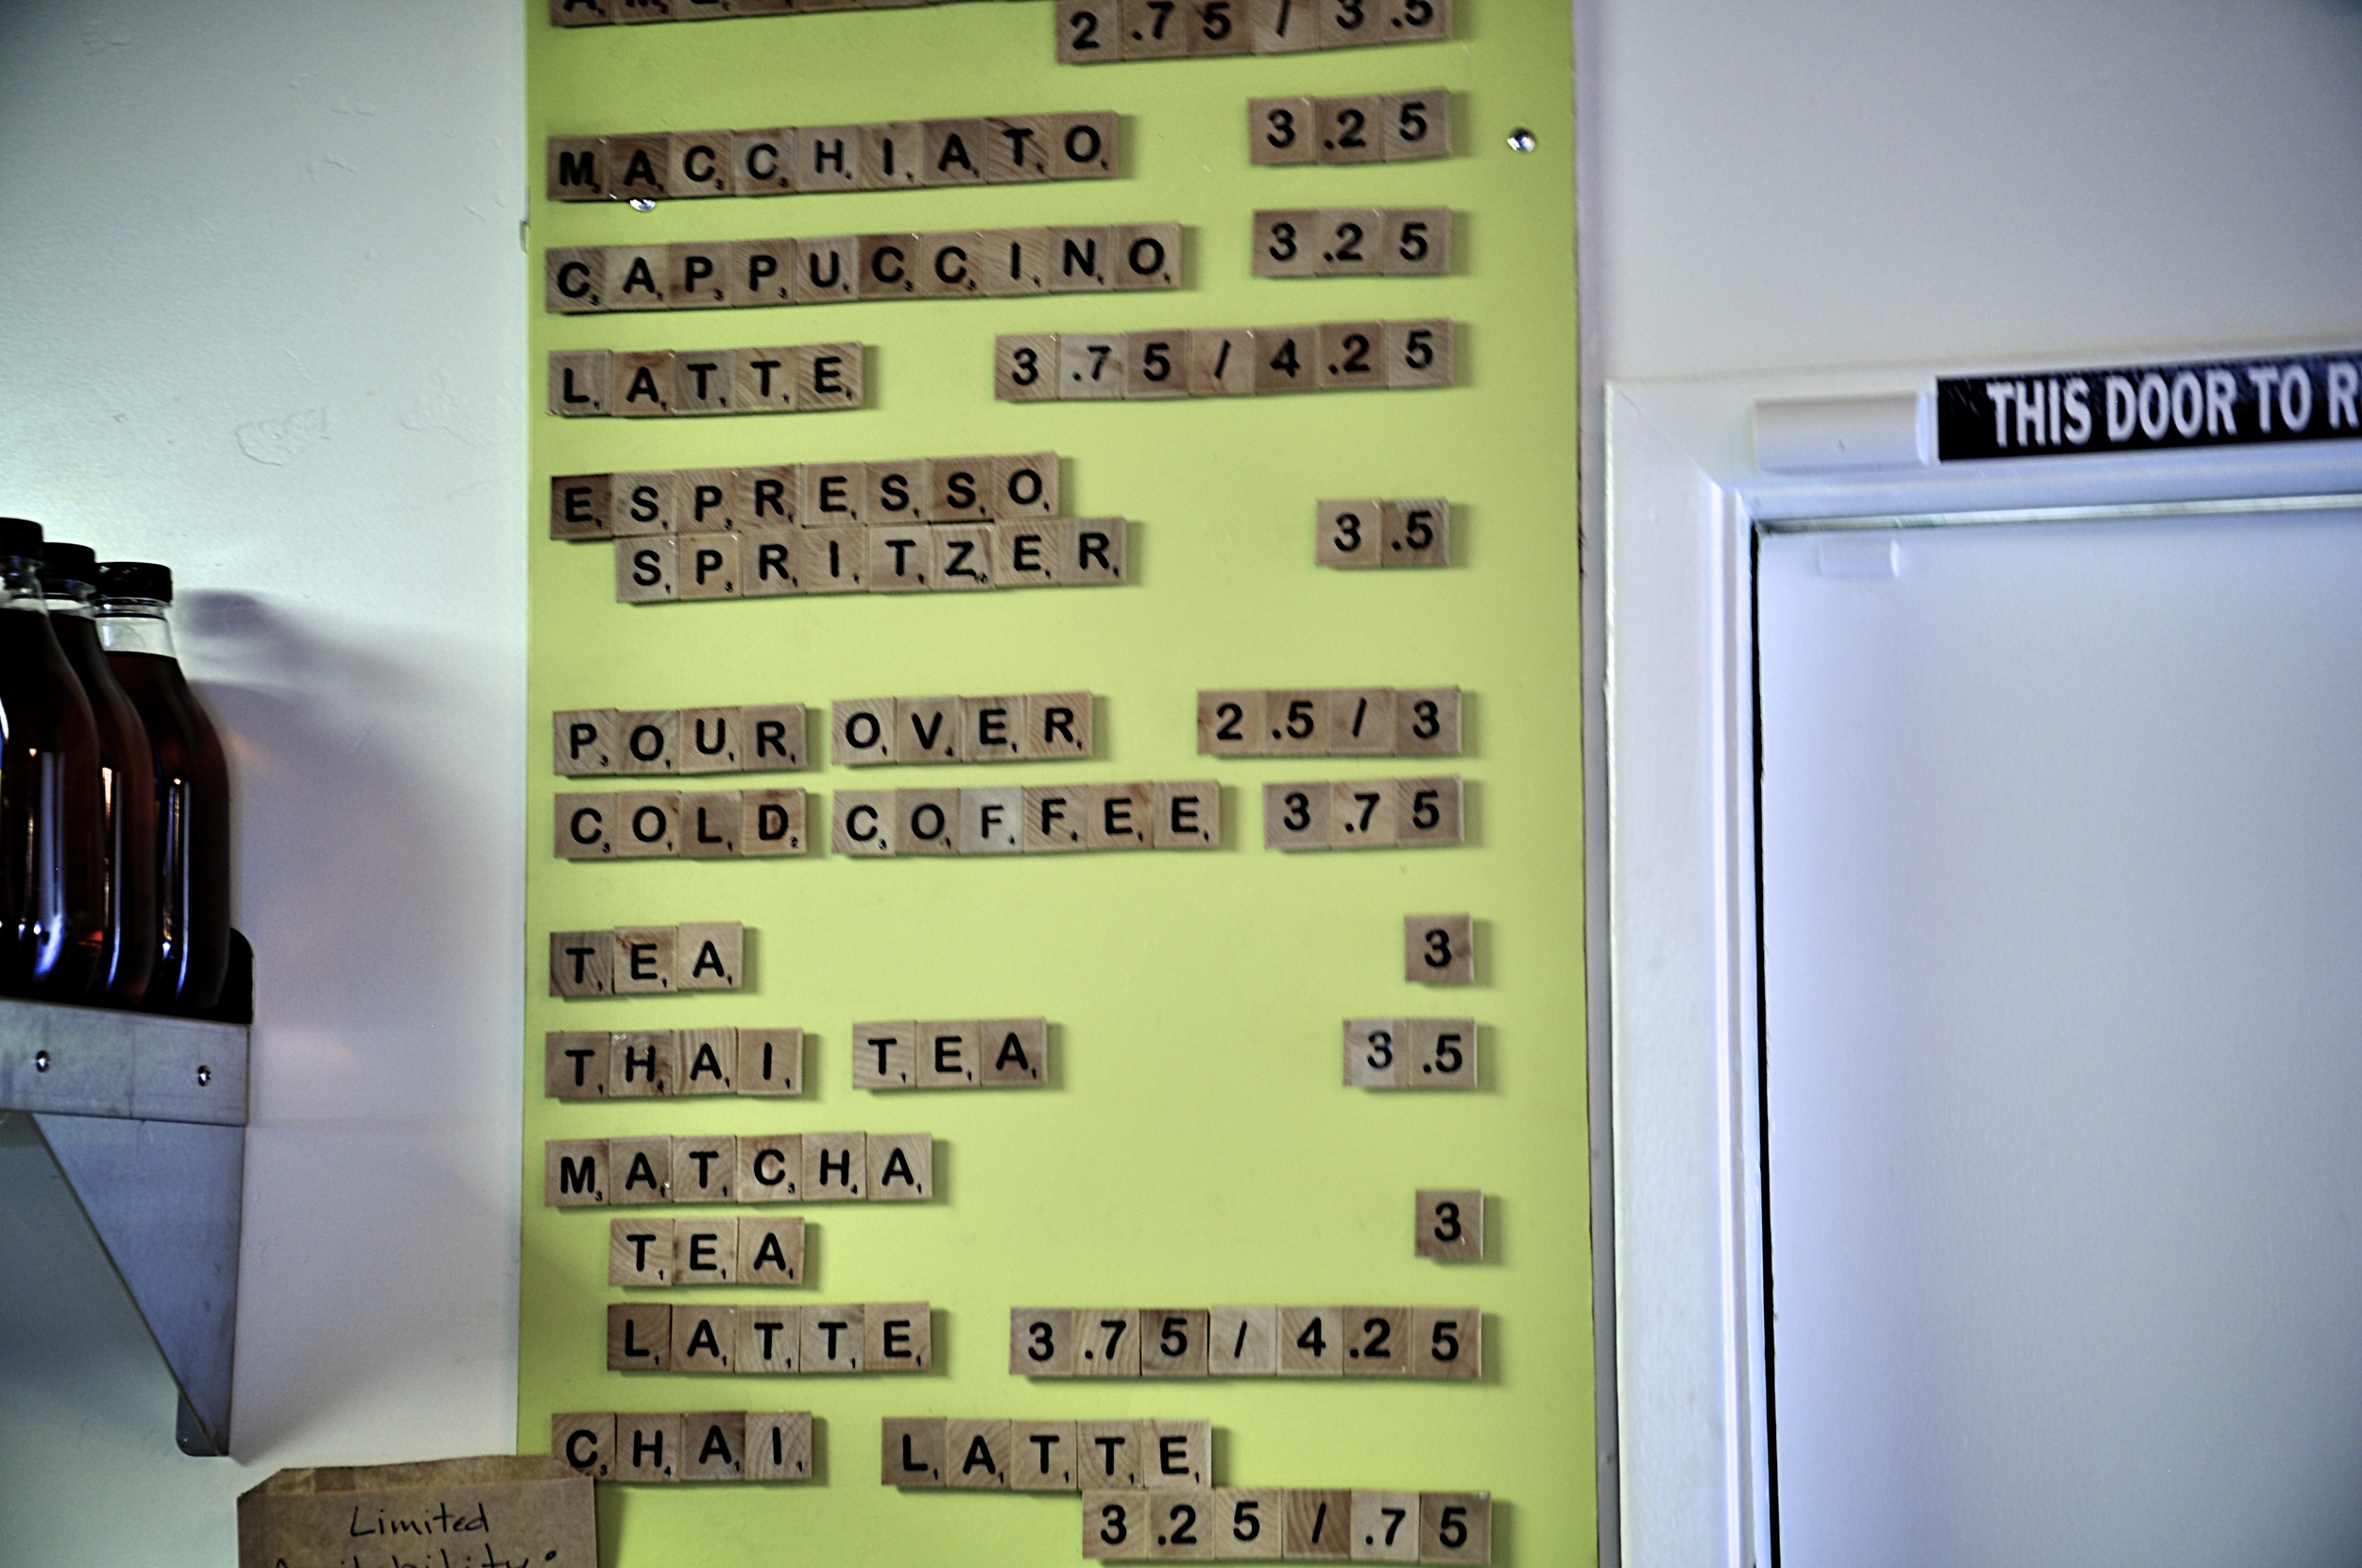 2.75/3.5
MACCHIATO 3.25
CAPPUCCINO 3.25
LATTE 3.75/4.25
ESPRESSO
SPRITZER 3.5
POUR OVER 2.5/3
COLD COFFEE 3.75
TEA 3
THAI TEA 3.5
MATCHA
TEA 3
LATTE 3.75/4.25
CHAI LATTE
3.25/.75
THIS DOOR TO R
Limited